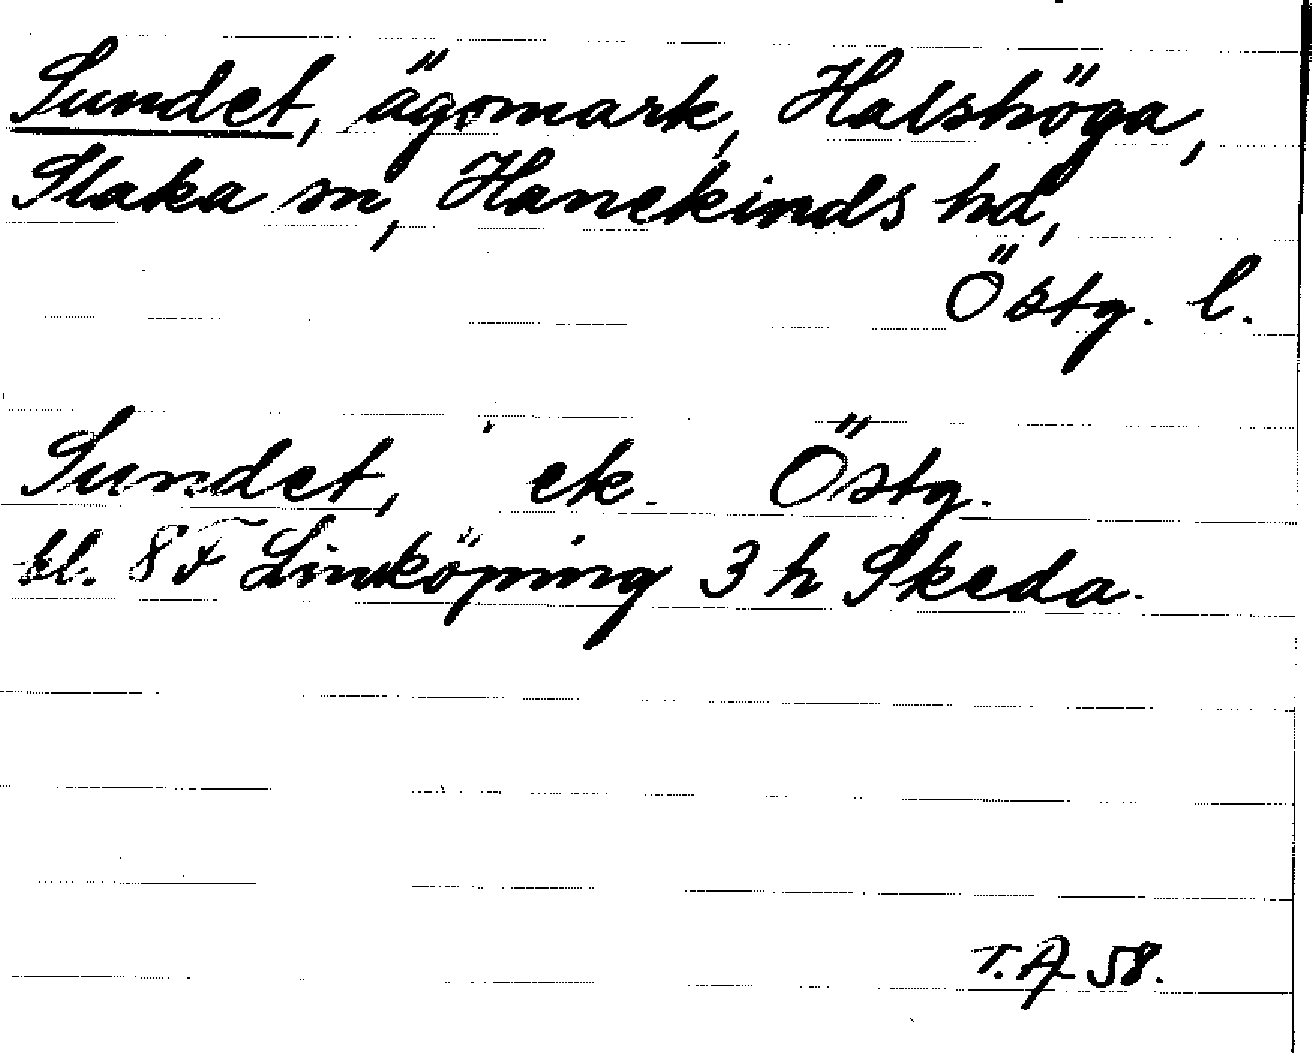 Sundet, ägomark, Halshöga,
Slaka sn, Hanekinds hd,
Östg. l.
Sundet, ek. Östg.
bl. 8F Linköping 3 h Skeda.
T.A 58.